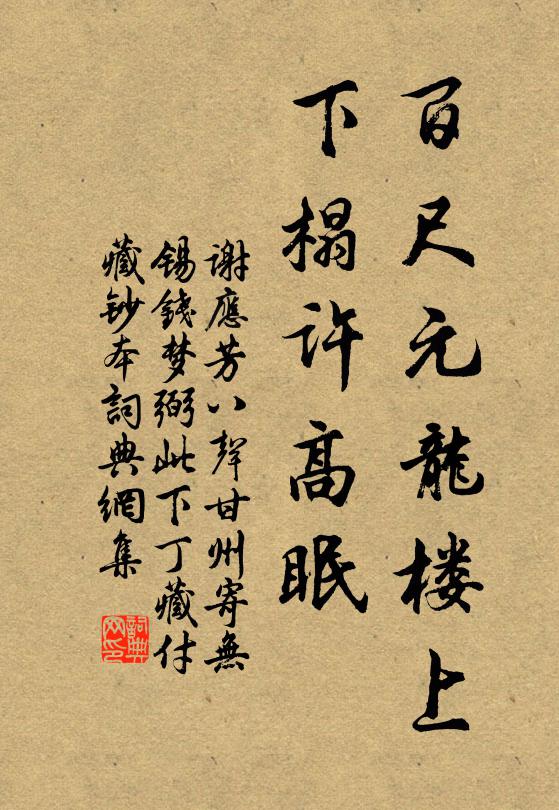 百尺元龍楼上
下榻许高眠
谢應芳八聲甘州寄無
锡錢梦弼此下丁藏付
藏鈔本詞典網集
詞典網印